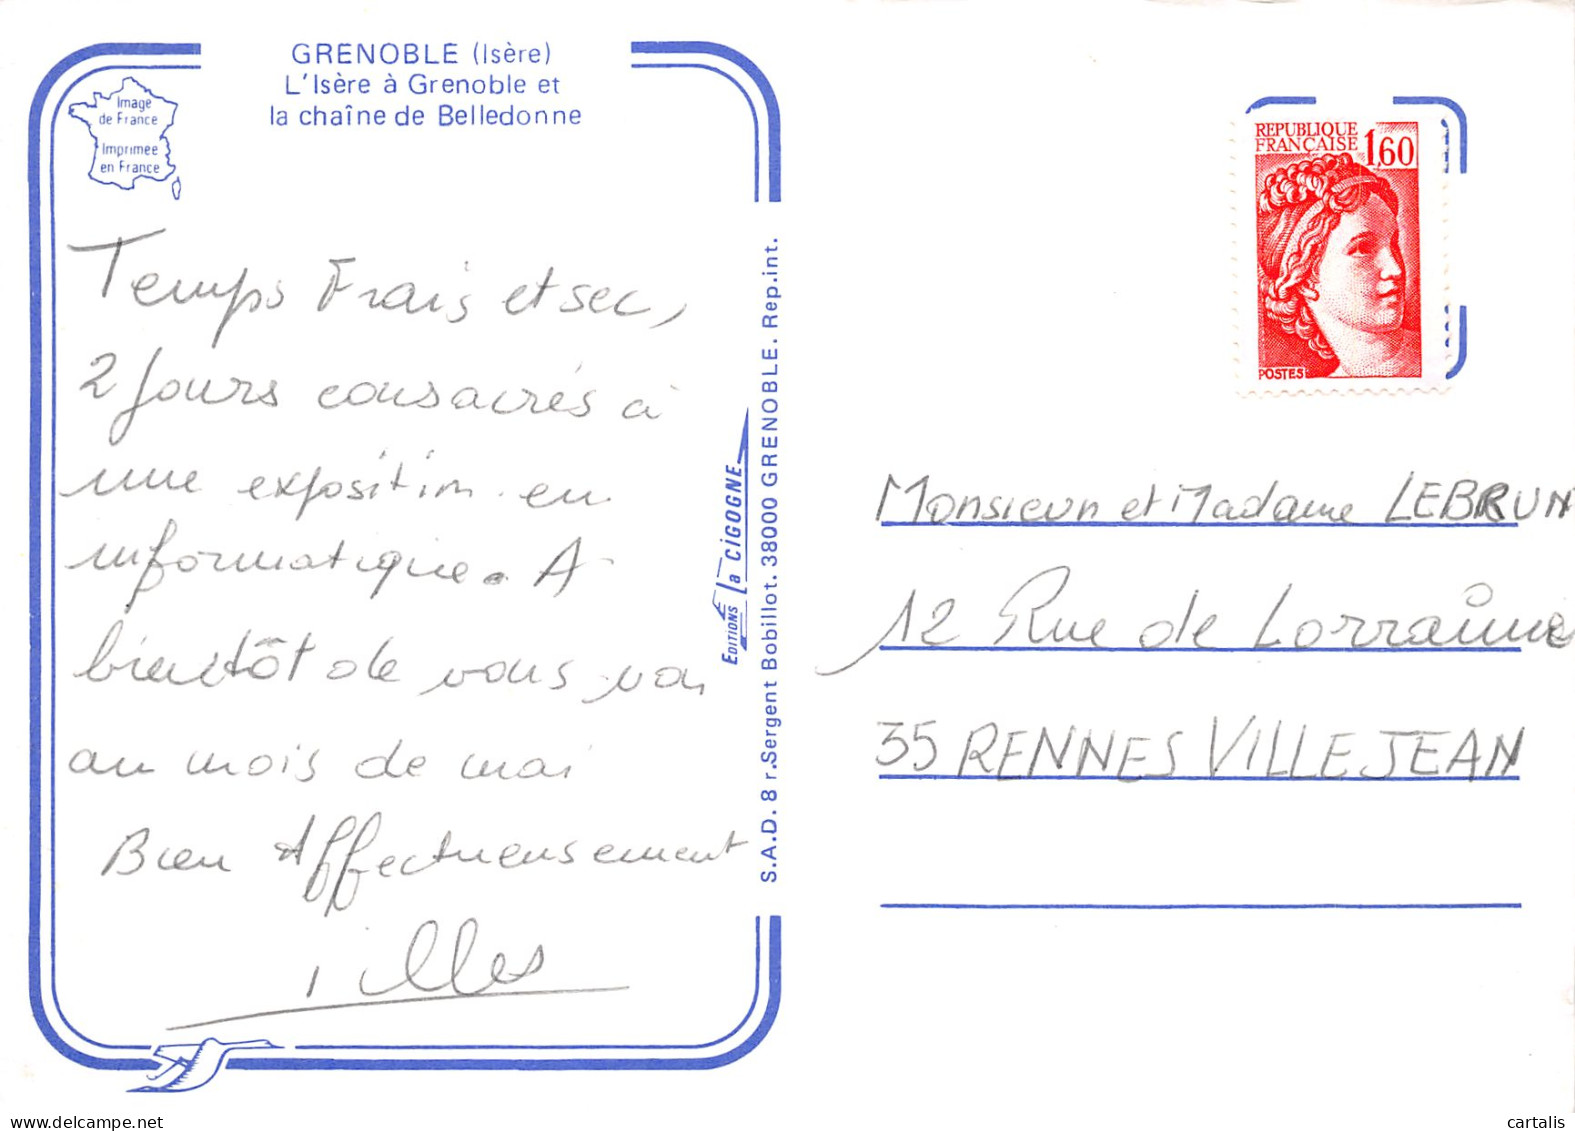 GRENOBLE (Isère)
L'Isère à Grenoble et
la chaîne de Belledonne
Image
de France
Imprimée
en France
Temps Frais et sec,
2 jours consacrés à
une exposition en
informatique. A
bientôt de vous voir
au mois de mai
Bien Affectueusement
Gilles
EDITIONS La CIGOGNE
S.A.D. 8 r.Sergent Bobillot. 38000 GRENOBLE. Rep.int.
REPUBLIQUE
FRANÇAISE
1,60
POSTES
Monsieur et Madame LEBRUN
12 Rue de Lorraine
35 RENNES VILLEJEAN
delcampe.net
cartalis